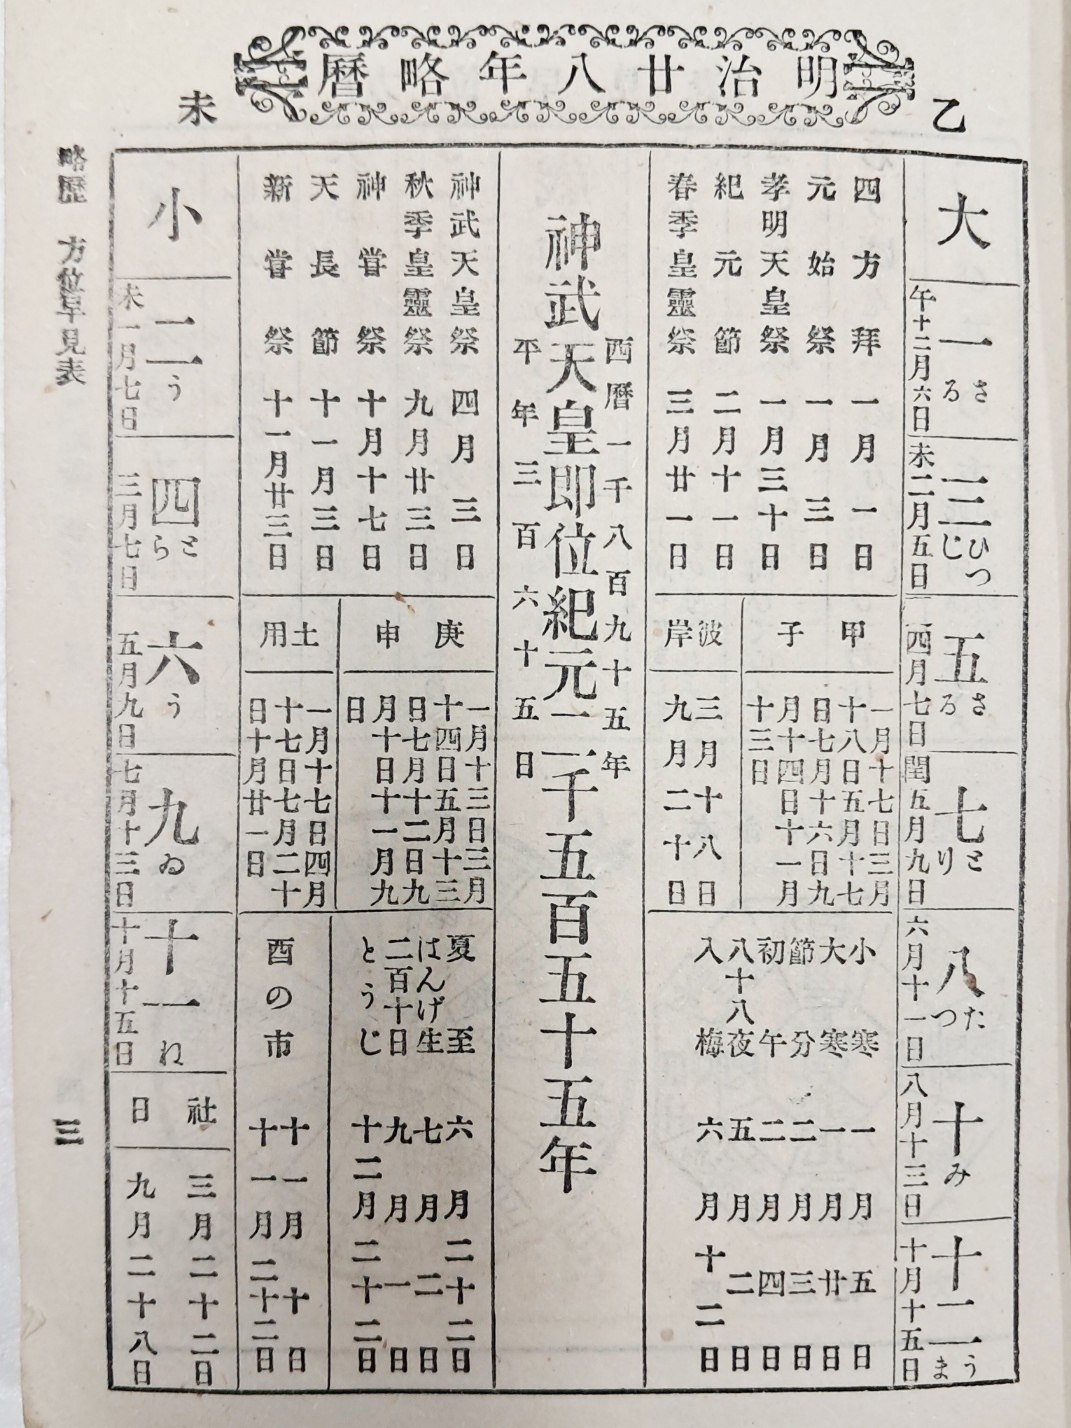 明治廿八年略曆
乙
未
大
一 さる
午十二月六日
三 ひつじ
未二月五日
五 さる
四月七日
七 とり
閏五月九日
八 たつ
六月十一日
十 み
八月十三日
十二 うま
十月十五日
四方拜 一月一日
元始祭 一月三日
孝明天皇祭 一月三十日
紀元節 二月十一日
春季皇靈祭 三月廿一日
甲子
一月十七日三月
十八日五月十七
日七月十六日九
月十四日十一月
十三日
彼岸
三月十八日
九月二十日
小寒 一月五日
大寒 一月廿日
節分 二月三日
初午 二月四日
八十八夜 五月二日
入梅 六月十二日
西曆一千八百九十五年
神武天皇即位紀元二千五百五十五年
平年三百六十五日
神武天皇祭 四月三日
秋季皇靈祭 九月廿三日
神嘗祭 十月十七日
天長節 十一月三日
新嘗祭 十一月廿三日
庚申
一月十三日三月
十四日五月十三
日七月十二日九
月十日十一月九
日
土用
一月十七日四月
十七日七月二十
日十月廿一日
夏至 六月二十二日
はんげ生 七月二日
二百十日 九月一日
とうじ 十二月二十二日
酉の市
十一月十日
十一月二十二日
小
二 う
未一月七日
四 とら
三月七日
六 う
五月九日
九 ゐ
七月十三日
十一 ね
十月十五日
社日
三月二十二日
九月二十八日
略歷 方位早見表
三